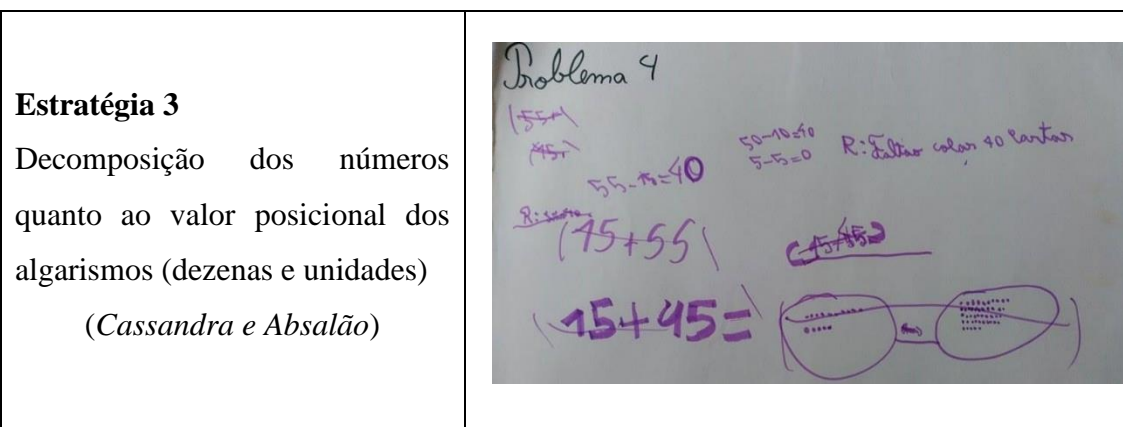 Estratégia 3
Decomposição dos números
quanto ao valor posicional dos
algarismos (dezenas e unidades)
(Cassandra e Absalão)
Problema 4
(55+)
(45+
50-10=40
5-5=0
R: Faltão colar 40 Cartas
55-15=40
R:
(15+55)
(15+55)
(15+45=)